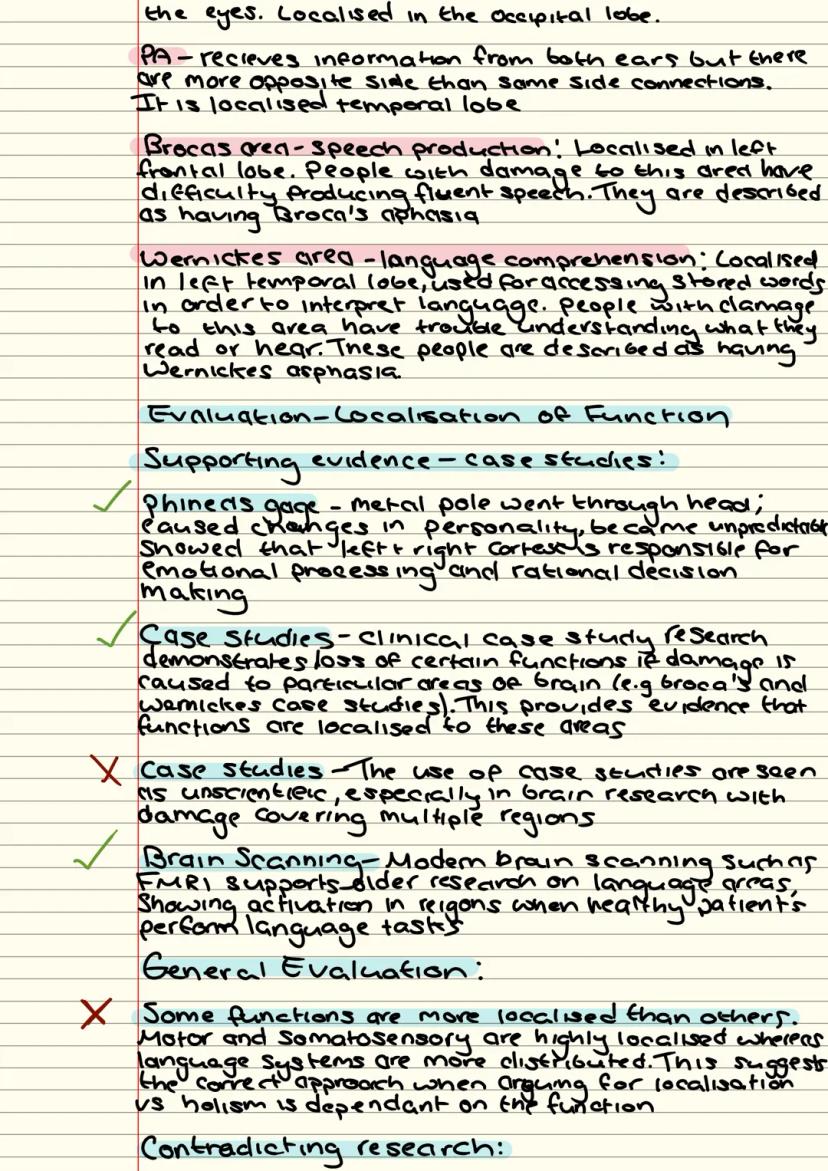 the eyes. Localised in the occipital lobe.
PA - recieves information from both ears but there
are more opposite side than same side connections.
It is localised temporal lobe
Brocas area - speech production: Localised in left
frontal lobe. People with damage to this area have
difficulty producing fluent speech. They are described
as having Broca's aphasia
Wernickes area - language comprehension: Localised
in left temporal lobe, used for accessing stored words
in order to interpret language. People with damage
to this area have trouble understanding what they
read or hear. These people are described as having
Wernickes asphasia.
Evaluation - Localisation of Function
Supporting evidence - case studies:
Phineas gage - metal pole went through head;
caused changes in personality, became unpredictable
showed that left + right cortex is responsible for
emotional processing and rational decision
making
Case studies - clinical case study research
demonstrates loss of certain functions if damage is
caused to particular areas of brain (e.g broca's and
wernickes case studies). This provides evidence that
functions are localised to these areas
Case studies - The use of case studies are seen
as unscientific, especially in brain research with
damage covering multiple regions
Brain Scanning - Modern brain scanning such as
FMRI supports older research on language areas,
showing activation in reigons when healthy patient's
perform language tasks
General Evaluation:
Some functions are more localised than others.
Motor and somatosensory are highly localised whereas
language systems are more distributed. This suggests
the correct approach when arguing for localisation
vs holism is dependant on the function
Contradicting research: